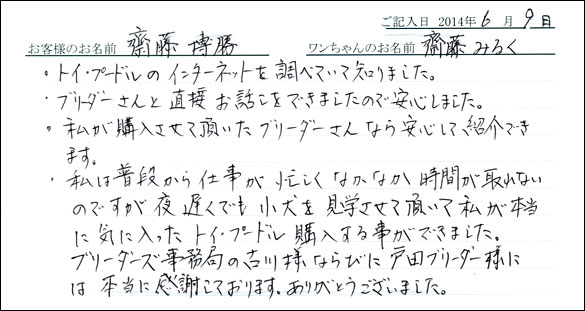 ご記入日 2014年6月9日
お客様のお名前 齋藤博勝 ワンちゃんのお名前 齋藤みるく
・トイ・プードルのインターネットを調べていて知りました。
・ブリーダーさんと直接お話しをできましたので安心しました。
・私が購入させて頂いたブリーダーさんなら安心して紹介でき
ます。
・私は普段から仕事が忙しくなかなか時間が取れない
のですが夜遅くでも小犬を見学させて頂いて私が本当
に気に入ったトイ・プードル購入する事ができました。
ブリーダーズ事務局の古川様ならびに戸田ブリーダー様に
は本当に感謝しております。ありがとうございました。